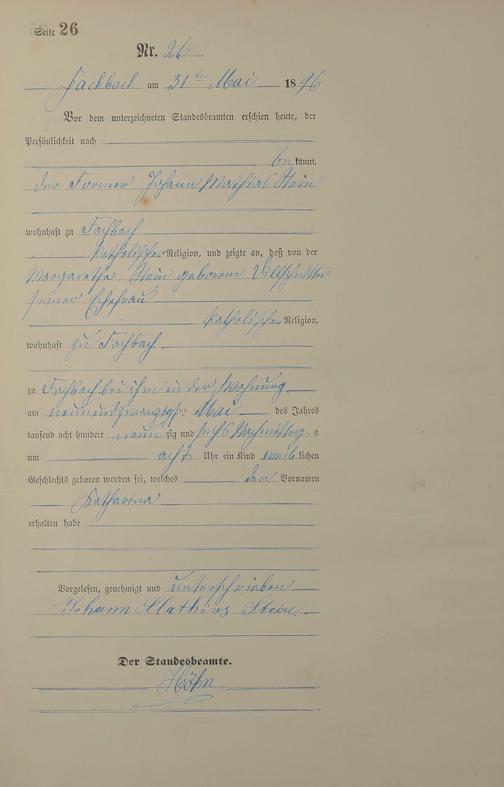 Seite 26
Nr. 26
Fachbach am 31ten Mai 1896
Vor dem unterzeichneten Standesbeamten erschien heute, der
Persönlichkeit nach
bekannt,
der Former Johann Mathias Stein
wohnhaft zu Fachbach
katholischer Religion, und zeigte an, daß von der
Margaretha Stein geborene
seiner Ehefrau
katholischer Religion,
wohnhaft zu Fachbach
zu Fachbach bei ihm in der Wohnung
am neunundzwanzigsten Mai des Jahres
tausend acht hundert neunzig und sechs Nachmittags
um acht Uhr ein Kind weiblichen
Geschlechts geboren worden sei, welches den Vornamen
Katharina
erhalten habe
Vorgelesen, genehmigt und unterschrieben
Johann Mathias Stein
Der Standesbeamte.
Höhn